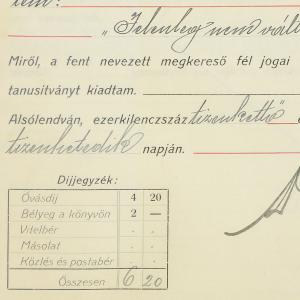 tem:
„Jelenleg nem vált
Miről, a fent nevezett megkereső fél jogai
tanusítványt kiadtam.
Alsólendván, ezerkilenczszáz tizenkettő
tizenhetedik napján.
Díjjegyzék:
Óvásdíj 4 20
Bélyeg a könyvön 2 —
Vitelbér . .
Másolat . .
Közlés és postabér . .
Összesen 6 20